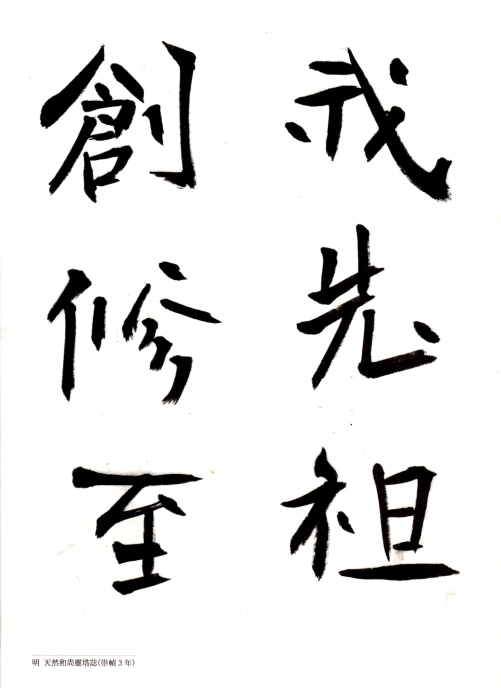 我先祖
創修至
明 天然和尚靈塔誌(崇禎3年)